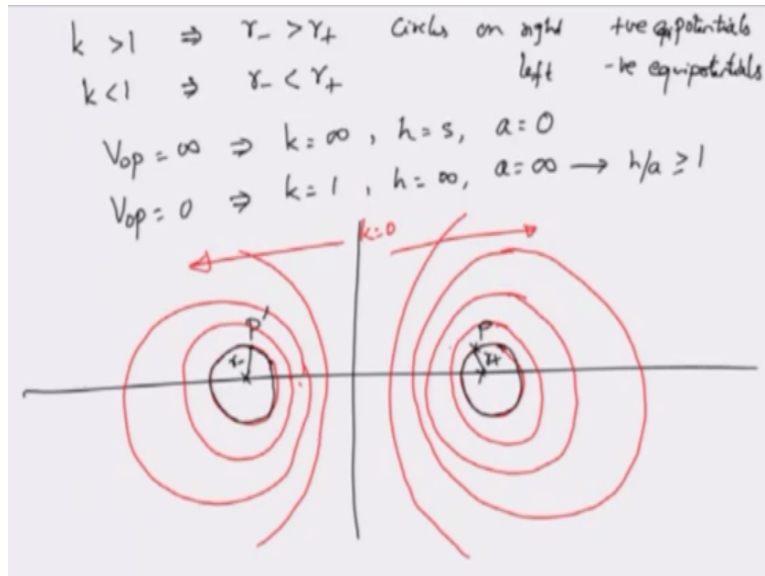 k > 1 ⇒ r₋ > r₊ Circles on right +ve equipotentials
k < 1 ⇒ r₋ < r₊ left -ve equipotentials
Vop = ∞ ⇒ k = ∞ , h = s, a = 0
Vop = 0 ⇒ k = 1 , h = ∞, a = ∞ → h/a ≥ 1
k=0
P' P
r₋ r₊